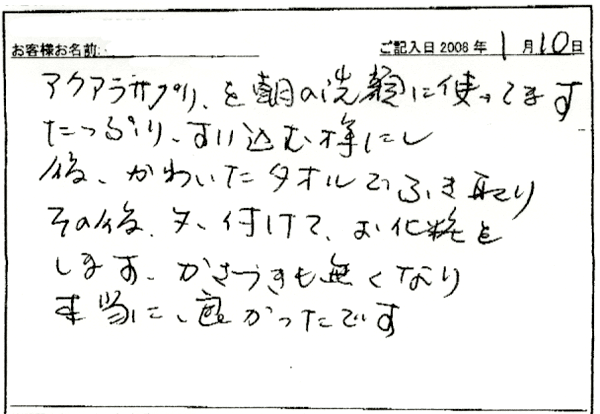 お客様お名前: ご記入日2008年 1月10日
アクアラサプリ、を朝の洗顔に使ってます
たっぷり、すい込む様にし
後、かわいたタオルでふき取り
その後、又、付けて、お化粧を
します、かさつきも無くなり
本当に、良かったです